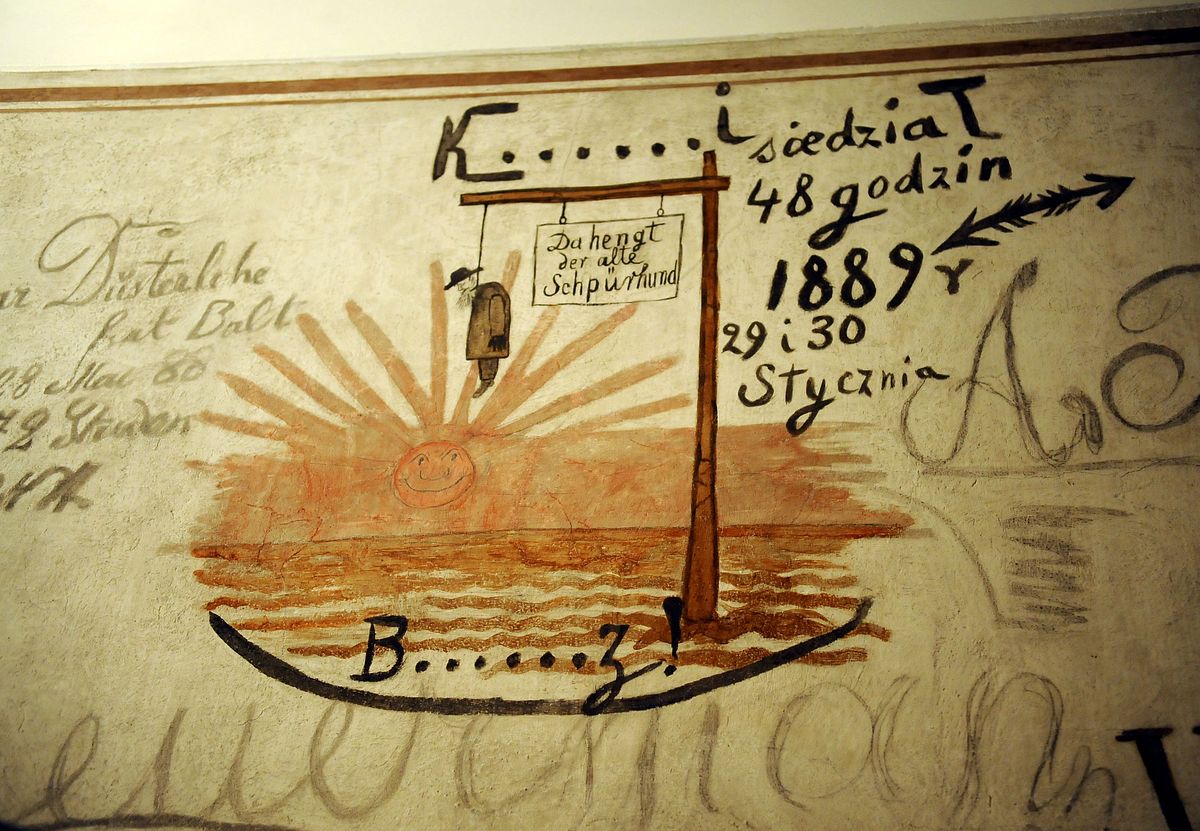 K.......i siedziaT
48 godzin
1889 r
29 i 30
Stycznia
Da hengt
der alte
Schpürhund
B.......z!
Düsterlche
hat Balt
28 Mai 88
72 Stunden
A